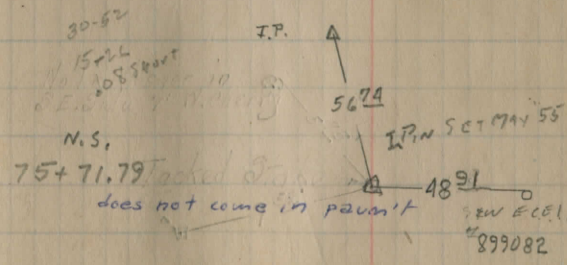 30-52
I.P.
15+26
.08 Short
56 74
I.Pin SET MAY '55
N.S.
75+71.79
48 91
does not come in pavm't
899082